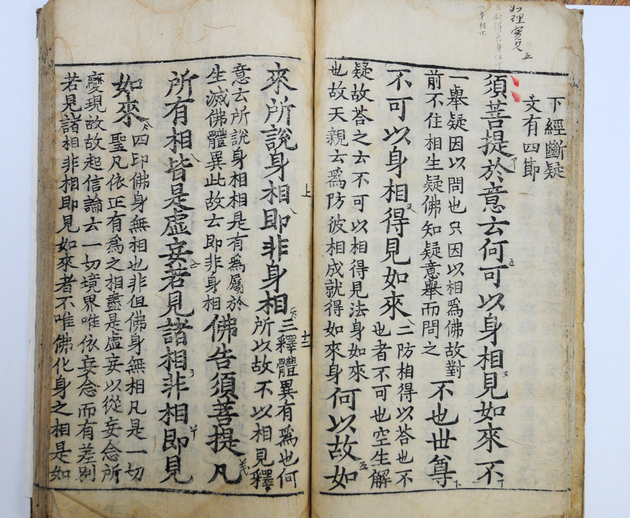 下經斷疑
文有四節
須菩提於意云何可以身相見如來不
一擧疑因以問也只因以相爲佛故對
前不住相生疑佛知疑意擧而問之
不也世尊
不可以身相得見如來
二防相得以答也不
也者不可也空生解
疑故答之云不可以相得見法身如來
也故天親云爲防彼相成就得如來身
何以故如
上 十二
來所說身相即非身相
三釋體異有爲也何
所以故不以相見釋
意云所說身相相是有爲屬於
生滅佛體異此故云即非身相
佛告須菩提凡
所有相皆是虛妄若見諸相非相即見
如來
四印佛身無相也非但佛身無相凡是一切
聖凡依正有爲之相盡是虛妄以從妄念所
變現故故起信論云一切境界唯依妄念而有差別
若見諸相非相即見如來者不唯佛化身之相是如